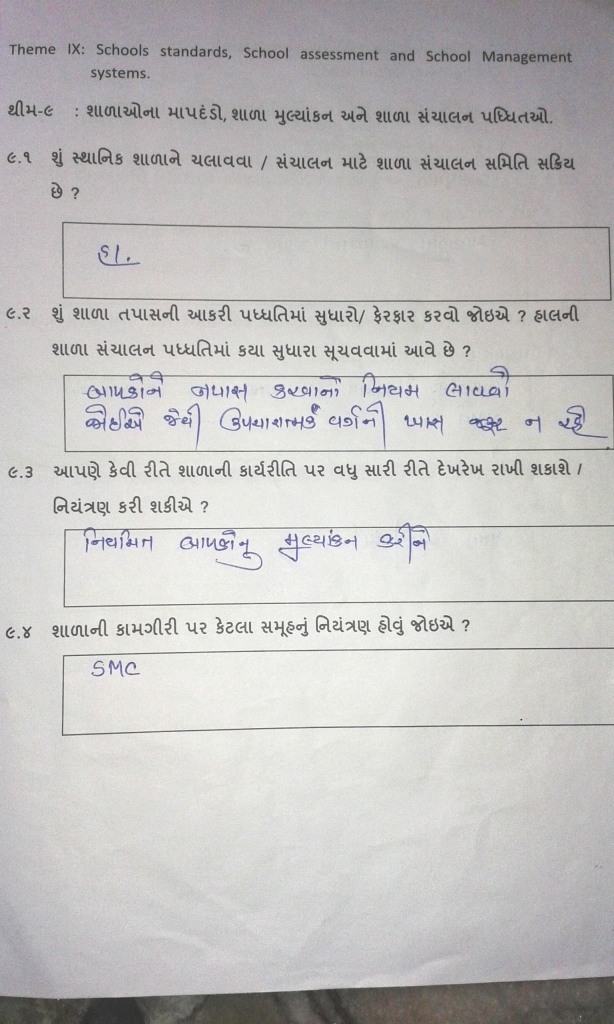 Theme IX: Schools standards, School assessment and School Management
systems.
થીમ-૯ : શાળાઓના માપદંડો, શાળા મુલ્યાંકન અને શાળા સંચાલન પધ્ધિતઓ.
૯.૧ શું સ્થાનિક શાળાને ચલાવવા / સંચાલન માટે શાળા સંચાલન સમિતિ સક્રિય
છે ?
હા.
૯.૨ શું શાળા તપાસની આકરી પધ્ધતિમાં સુધારો/ ફેરફાર કરવો જોઇએ ? હાલની
શાળા સંચાલન પધ્ધતિમાં કયા સુધારા સૂચવવામાં આવે છે ?
બાળકોને નપાસ કરવાનો નિયમ લાવવો
જોઈએ જેથી ઉપચારાત્મક વર્ગની ખાસ જરૂર ન રહે
૯.૩ આપણે કેવી રીતે શાળાની કાર્યરીતિ પર વધુ સારી રીતે દેખરેખ રાખી શકાશે /
નિયંત્રણ કરી શકીએ ?
નિયમિત બાળકોનુ મુલ્યાંકન કરીને
૯.૪ શાળાની કામગીરી પર કેટલા સમૂહનું નિયંત્રણ હોવું જોઇએ ?
SMC